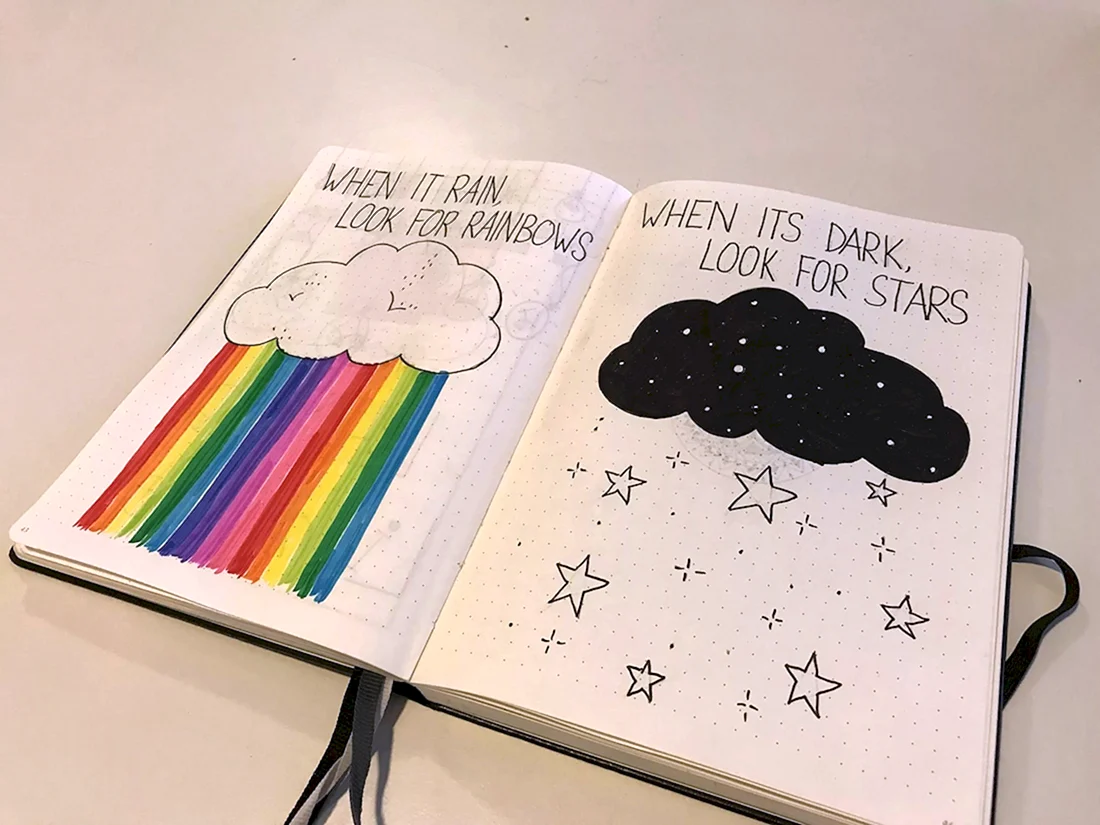 WHEN IT RAIN,
LOOK FOR RAINBOWS
WHEN ITS DARK,
LOOK FOR STARS